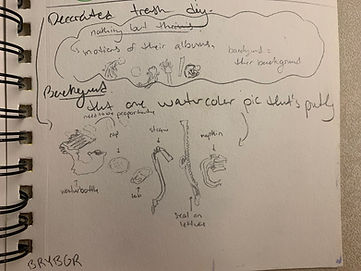 Decorated trash diy.
nothing but
motions of their albums,
backgrnd =
their background
Background
that one watercolor pic that's pretty
needs to be proportionate
cap
straw
napkin
waterbottle
lid
seal on
BRYBGR